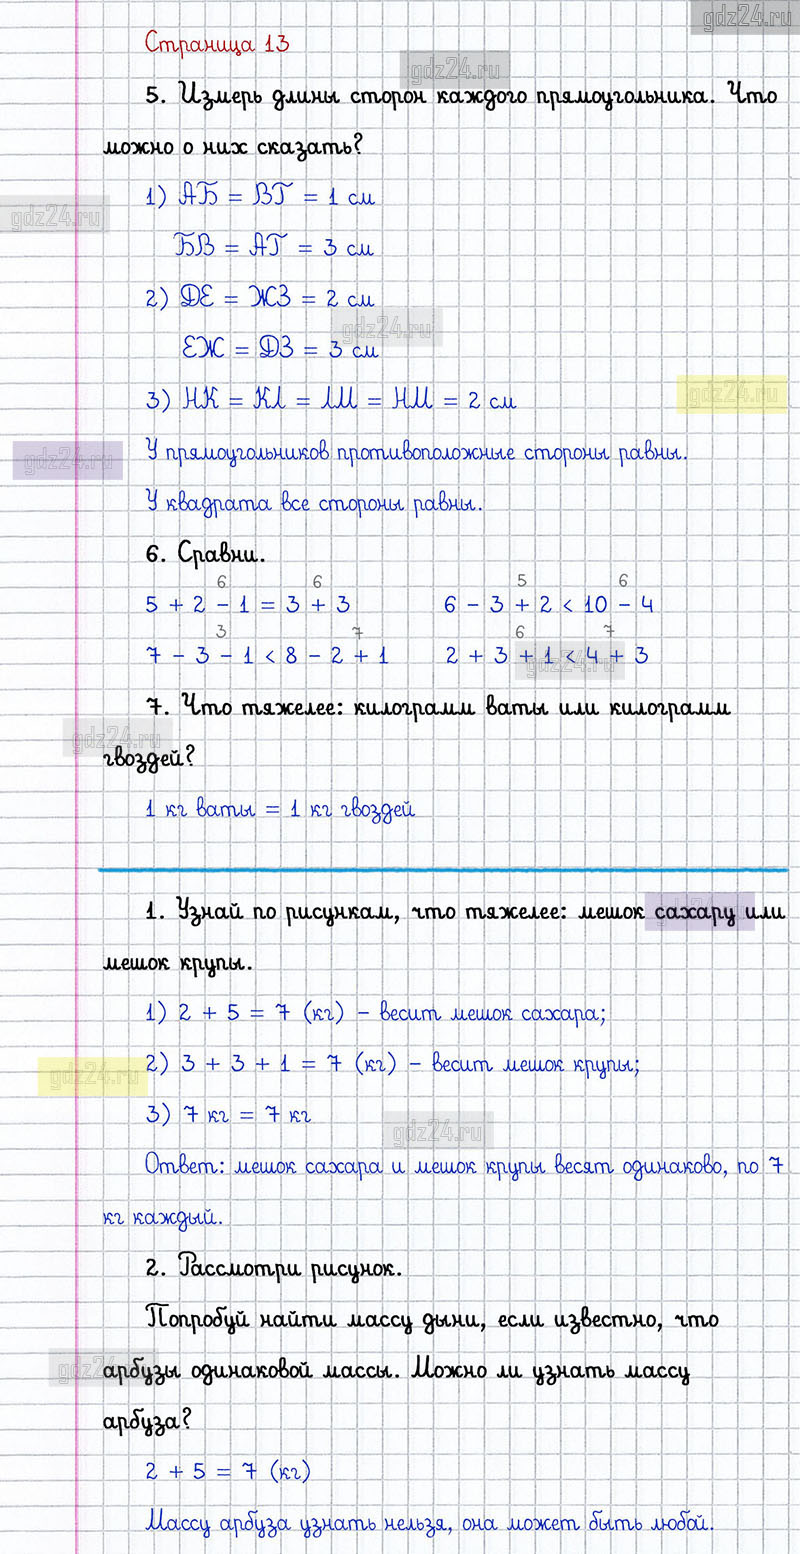 gdz24.ru
Страница 13
gdz24.ru
5. Измерь длины сторон каждого прямоугольника. Что
можно о них сказать?
1) АБ = ВГ = 1 см
gdz24.ru
БВ = АГ = 3 см
2) ДЕ = ЖЗ = 2 см
gdz24.ru
ЕЖ = ДЗ = 3 см
3) НК = КЛ = ЛМ = НМ = 2 см
gdz24.ru
У прямоугольников противоположные стороны равны.
gdz24.ru
У квадрата все стороны равны.
6. Сравни.
6 6 5 6
5 + 2 - 1 = 3 + 3 6 - 3 + 2 < 10 - 4
3 7 6 7
7 - 3 - 1 < 8 - 2 + 1 2 + 3 + 1 < 4 + 3
gdz24.ru
7. Что тяжелее: килограмм ваты или килограмм
gdz24.ru
гвоздей?
1 кг ваты = 1 кг гвоздей
1. Узнай по рисункам, что тяжелее: мешок сахару или
gdz24.ru
мешок крупы.
1) 2 + 5 = 7 (кг) - весит мешок сахара;
2) 3 + 3 + 1 = 7 (кг) - весит мешок крупы;
gdz24.ru
3) 7 кг = 7 кг
gdz24.ru
Ответ: мешок сахара и мешок крупы весят одинаково, по 7
кг каждый.
2. Рассмотри рисунок.
Попробуй найти массу дыни, если известно, что
gdz24.ru
арбузы одинаковой массы. Можно ли узнать массу
арбуза?
2 + 5 = 7 (кг)
Массу арбуза узнать нельзя, она может быть любой.